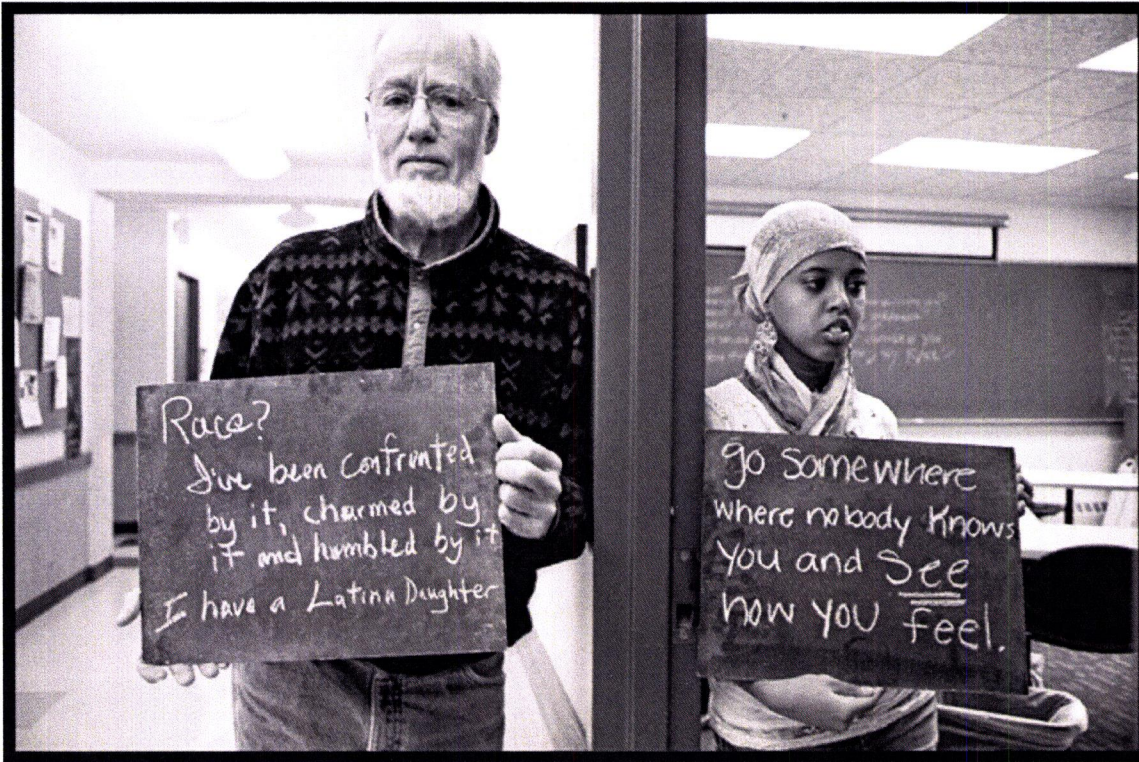 Race?
I've been confronted
by it, charmed by
it and humbled by it
I have a Latina Daughter
go somewhere
where nobody knows
you and See
how you feel.